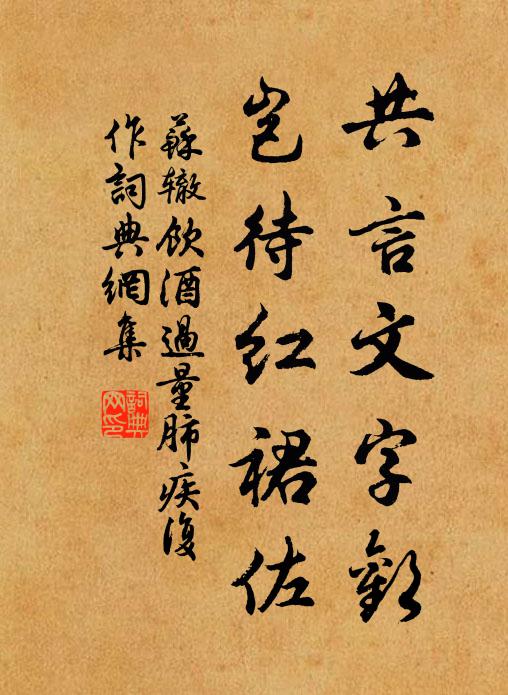 共言文字歡
豈待紅裙佐
蘇辙飲酒過量肺疾復
作詞典網集
詞典
网印